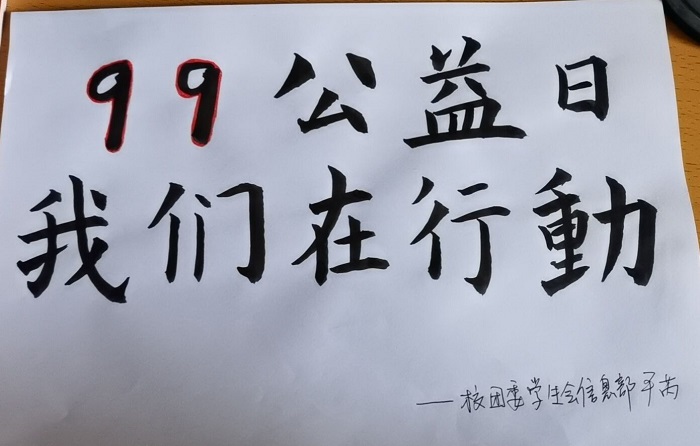 99公益日
我们在行動
——校团委学生会信息部平芮